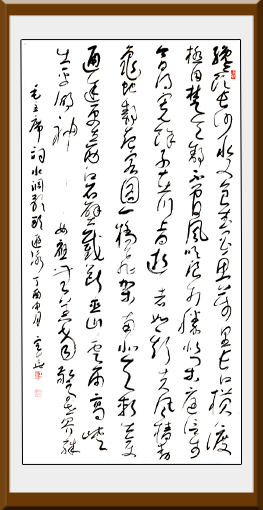 才饮长沙水又食武昌鱼万里长江横渡
极目楚天舒不管风吹浪打胜似闲庭信步
今日得宽余子在川上曰逝者如斯夫风樯动
龟蛇静起宏图一桥飞架南北天堑变
通途更立西江石壁截断巫山云雨高峡
出平湖神女应无恙当惊世界殊
毛主席词水调歌头游泳丁酉